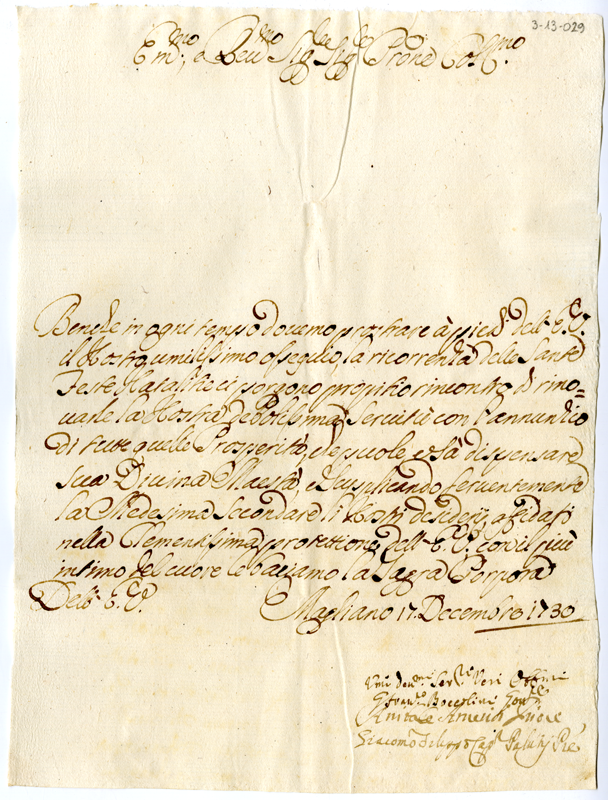 3-13-029
Em.mo, e Rev.mo Sig.re Sig.re Prone Col.mo
Benche in ogni tempo dovemo prostrare à piedi dell' E.V.
il Nostro umilissimo ossequio, la ricorrenza delle Sante
Feste Natalitie ci porgono propitio rincontro di rino=
vare la Nostra devotissima servitù con l'annuntio
di tutte quelle Prosperità, che puole, e sà dispensare
sua Divina Maestà, e supplicando ferventemente
la Medesima secondare li Nostri desiderij, affidati
nella Clementissima protettione dell' E.V. con il più
intimo del cuore le baciamo la Sagra Porpora
Dell' E.V. Magliano 17. Decembre 1730
Umi Dev.mi Ser.ri Veri Obb.mi
Fran.co Boccolini Gonf.re
Giacomo Cap.